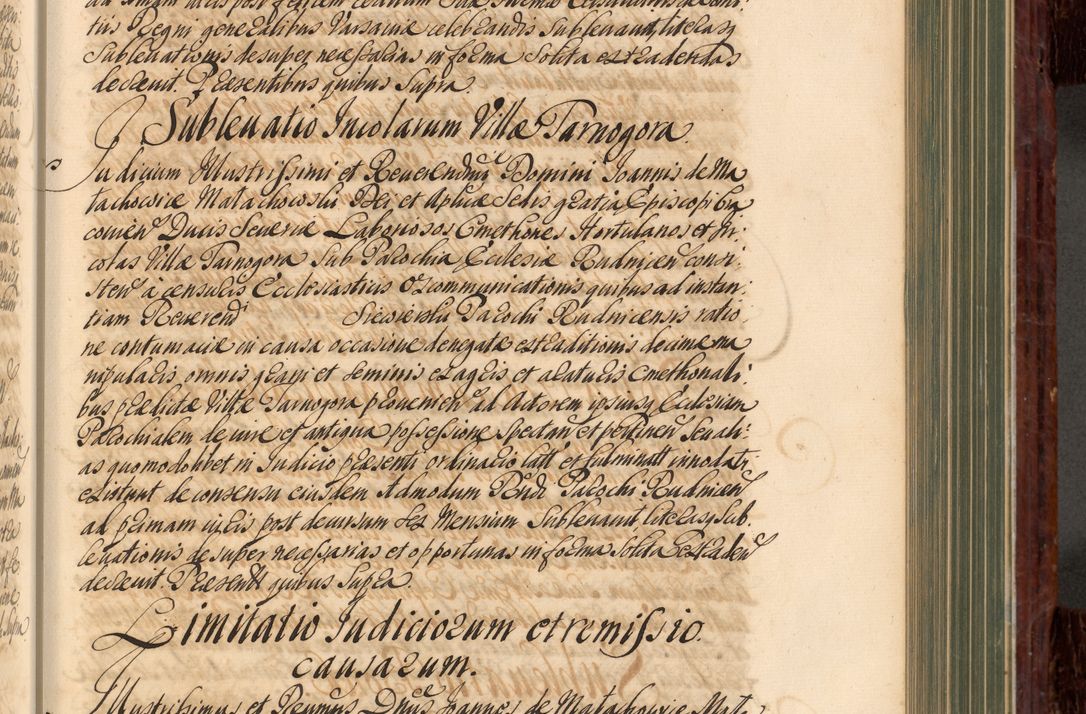 tiis Regni generalibus Varsaviæ celebrandis Sublevavit, literasq
Sublevationis desuper necessarias in forma Solita extradendas
decrevit. Præsentibus quibus Supra.
Sublevatio Incolarum Villæ Tarnogora.
Judicium Illustrissimi et Reverendmi Domini Joannis de Ma
łachowice Małachowski Dei et Aplicæ Sedis gratia Episcopi Cra
covien Ducis Severiæ Laboriosos Cmethones Hortulanos et In
colas Villæ Tarnogora Sub Parochia Ecclesiæ Rudnicen consi
sten a censuris Ecclesiasticis Excommunicationis quibus ad instan
tiam Reverend Siewierski Parochi Rudnicensis ratio
ne contumaciæ in causa occasione denegatæ extraditionis decimæ ma
nipularis omnis grani et seminis ex agris et araturis Cmethonali
bus prædictæ Villæ Tarnogora provenien ad Actorem ipsiusq Ecclesiam
Parochialem de jure et antiqua possessione spectan et pertinen seu ali
as quomodolibet in Judicio præsenti ordinario latt et fulminatt innodati
existunt de consensu eiusdem Admodum Rndi Parochi Rudnicen
ad primam juris post decursum Sex Mensium Sublevavit, literasq Sub
levationis desuper necessarias et opportunas in forma Solita Extraden
decrevit. Præsentt quibus Supra
Limitatio Judiciorum et remissio
causarum.
Illustrissimus et Revmus Dnus Joannes de Małachowice Mała